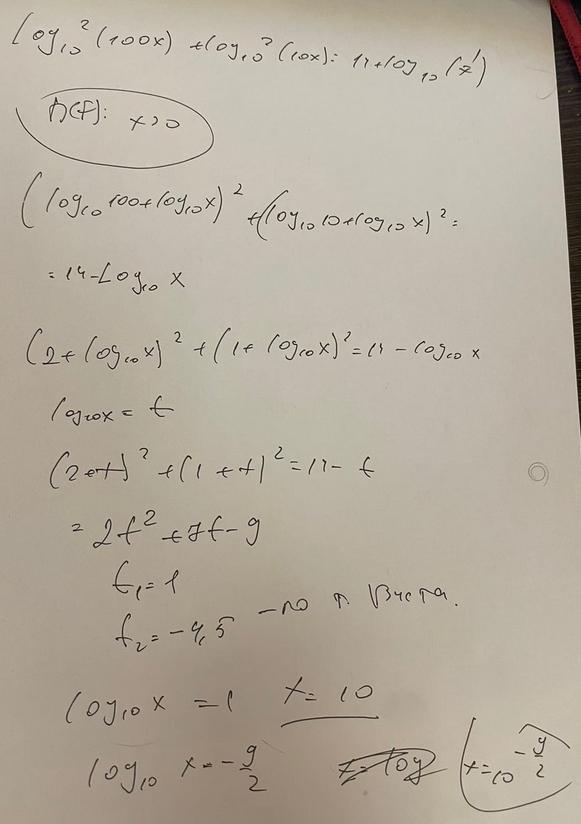 log₁₀²(100x) + log₁₀²(10x) = 14 + log₁₀(1/x)
D(f): x > 0
(log₁₀ 100 + log₁₀ x)² + (log₁₀ 10 + log₁₀ x)² =
= 14 - Log₁₀ x
(2 + log₁₀ x)² + (1 + log₁₀ x)² = 14 - log₁₀ x
log₁₀ x = t
(2 + t)² + (1 + t)² = 14 - t
= 2t² + 7t - 9
t₁ = 1
t₂ = -4,5 - по т. Виета.
log₁₀ x = 1 x = 10
log₁₀ x = -9/2 x = 10^(-9/2)